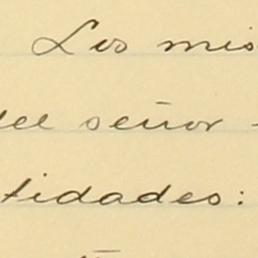 Los mis
del señor
tidades: